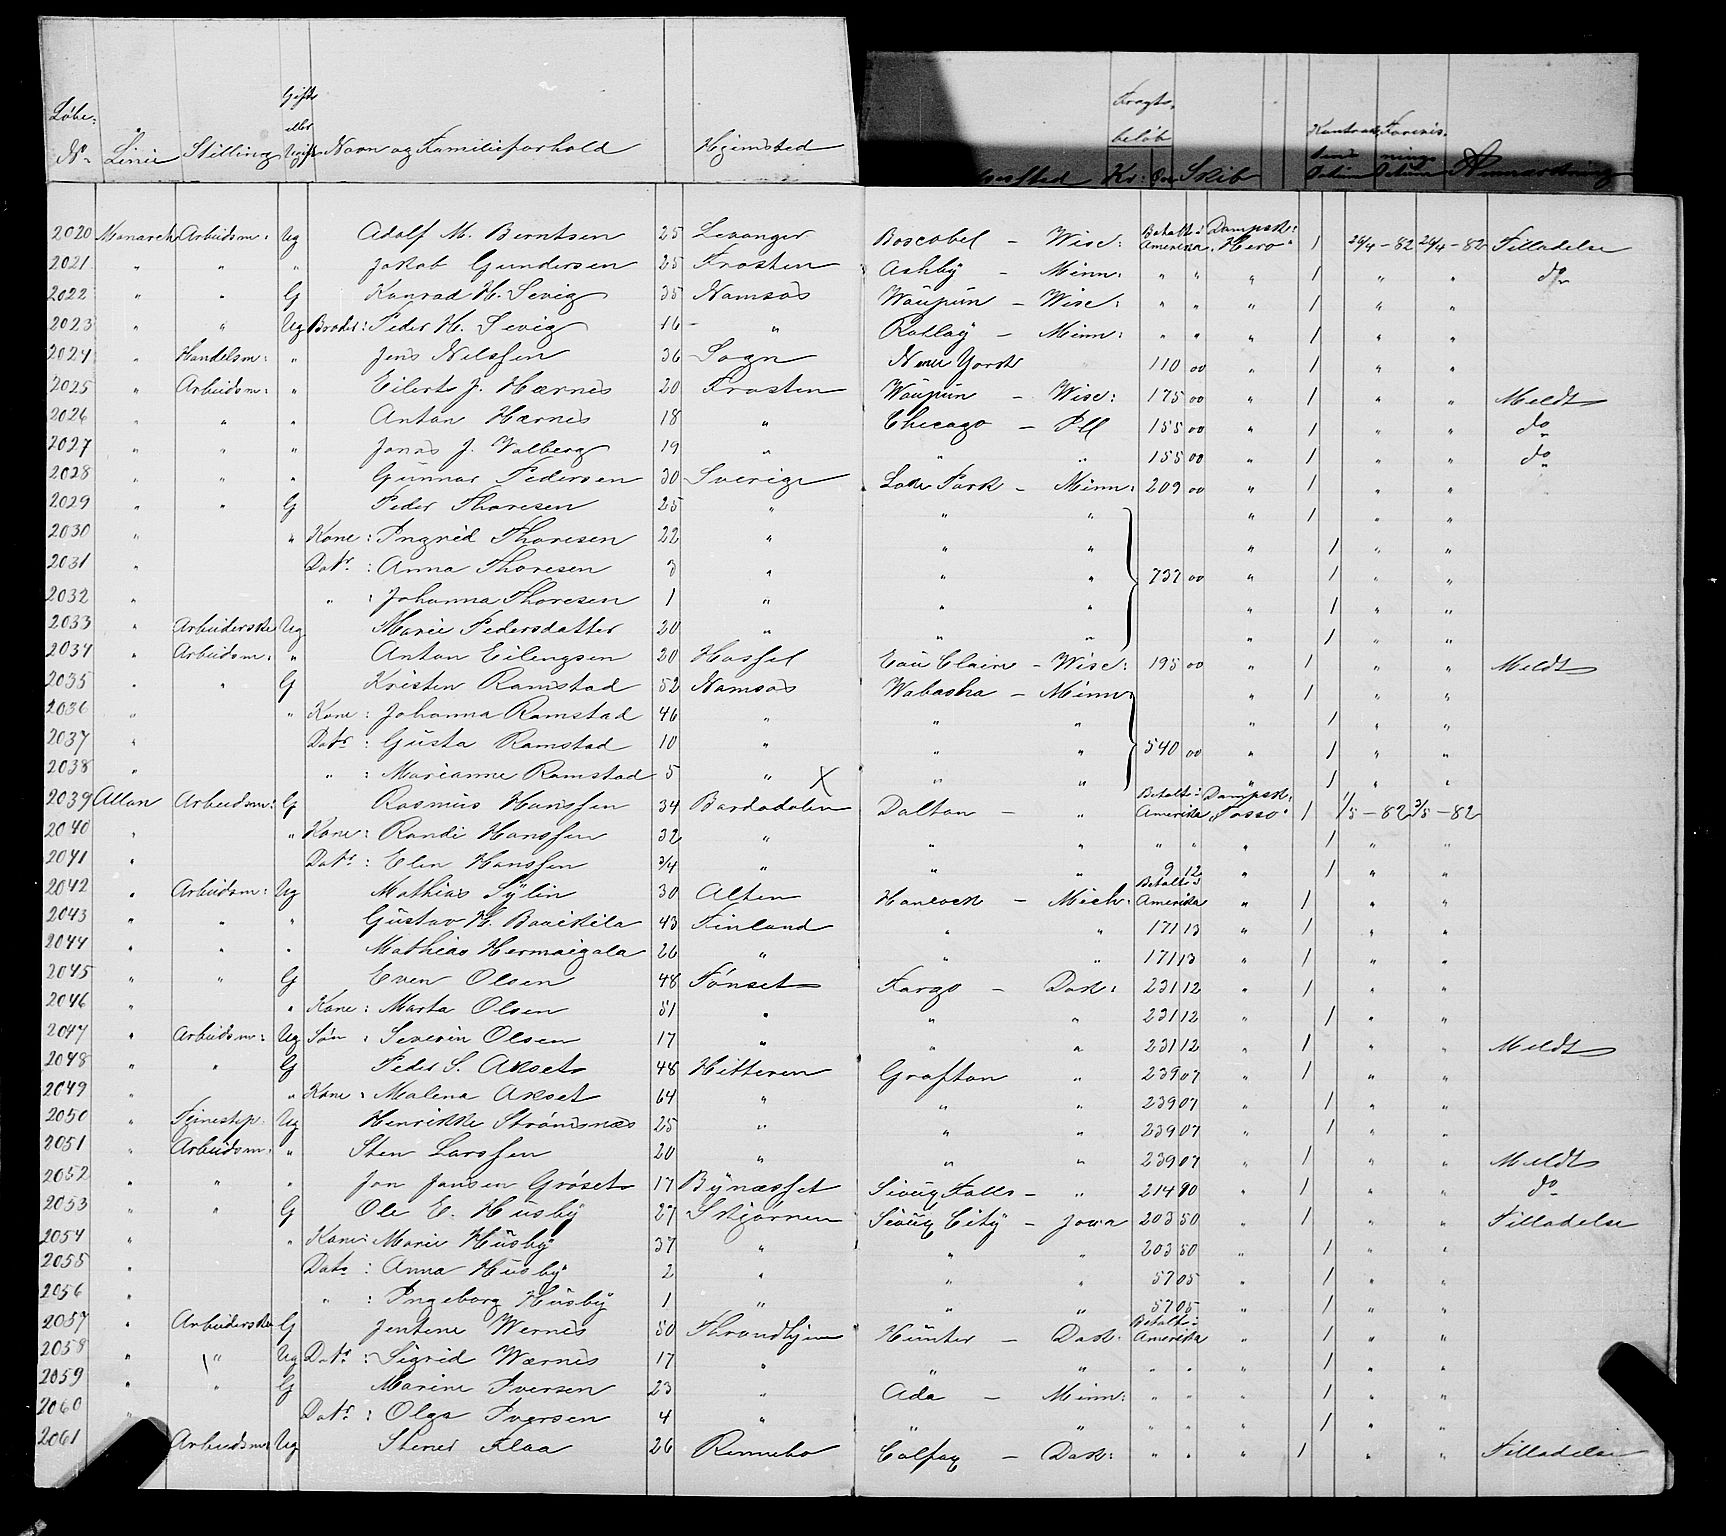 Løbe- Gift Fragt-
eller beløb Kontrakt Forevis-
No Linie Stilling Ugift Navn og Familieforhold Hjemsted Kr: Øre Skib Datum nings Datum Anmærkning
2020 Monarch Arbeidsm: Ug Adolf M. Berntsen 25 Levanger Boscobel – Wisc: Betalt i Amerika Dampsk: "Hero" 1 24/4 – 82 24/4 – 82 Tilladelse
2021 " " " Jakob Gundersen 25 Frosten Ashby – Minn: " " " 1 " " do
2022 " " G Konrad H. Sevig 35 Namsos Waupun – Wisc: " " " 1 " "
2023 " " Ug Broder: Peder H. Sevig 16 " Rothay – Minn: " " " 1 " "
2024 " Handelsm: " Jens Nilssen 36 Sogn New York 110 00 " 1 " "
2025 " Arbeidsm: " Eilert J. Hærnes 20 Frosten Waupun – Wisc: 175 00 " 1 " " Meldt
2026 " " " Anton Hærnes 18 " Chicago – Ill 155 00 " 1 " " do
2027 " " " Jonas J. Valberg 19 " " " 155 00 " 1 " " do
2028 " " " Gunnar Pedersen 30 Sverige Lake Park – Minn: 209 00 " 1 " "
2029 " " G Peder Thoresen 25 " " " " 1 " "
2030 " " Kone: Ingrid Thoresen 22 " " " " 1 " "
2031 " Datr: Anna Thoresen 3 " " " 737 00 " 1 " "
2032 " " : Johanna Thoresen 1 " " " " 1 " "
2033 " Arbeiderske Ug Marie Pedersdatter 20 " " " " 1 " "
2034 " Arbeidsm: " Anton Eilengsen 20 Hassel Eau Claire – Wisc: 195 00 " 1 " " Meldt
2035 " " G Kristen Ramstad 52 Namsos Wabasha – Minn " 1 " "
2036 " " Kone: Johanna Ramstad 46 " " " " 1 " "
2037 " Datr: Gusta Ramstad 10 " " " 540 00 " 1 " "
2038 " " : Marianne Ramstad 5 " X " " " 1 " "
2039 Allan Arbeidsm: G Rasmus Hanssen 34 Bardodalen Dalton – " Betalt i Amerika Dampsk: "Tasso" 1 1/5 – 82 3/5 – 82
2040 " " Kone: Randi Hanssen 32 " " " " " " 1 " "
2041 " Datr: Elen Hanssen 3/4 " " " 9 12 " 1 " "
2042 " Arbeidsm: Ug Mathias Sylin 30 Alten Hancock – Mich: Betalt i Amerika " 1 " "
2043 " " " Gustav H. 43 Finland " " 171 13 " 1 " "
2044 " " " Mathias Hermaigala 26 " " " 171 13 " 1 " "
2045 " " G Even Olsen 48 Tønset Fargo – Dak: 231 12 " 1 " "
2046 " " Kone: Marta Olsen 51 " " " 231 12 " 1 " "
2047 " Arbeidsm: Ug Søn: Severin Olsen 17 " " " 231 12 " 1 " " Meldt
2048 " " G Peder S. Akset 48 Hitteren Grafton " 239 07 " 1 " "
2049 " " Kone: Malena Akset 64 " " " 239 07 " 1 " "
2050 " Tjenestep. Ug Henrikke Strømsnæs 25 " " " 239 07 " 1 " "
2051 " Arbeidsm: " Sten Larssen 20 " " " 239 07 " 1 " " Meldt
2052 " " " Jon Jonsen Grøset 17 Bynæsset Sioux Falls – " 214 90 " 1 " " do
2053 " " G Ole E. Husby 27 Skjørnen Sioux City – Jowa 203 50 " 1 " " Tilladelse
2054 " " Kone: Marie Husby 37 " " " 203 50 " 1 " "
2055 " Datr: Anna Husby 2 " " " 57 05 " 1 " "
2056 " " : Ingeborg Husby 1 " " " 57 05 " 1 " "
2057 " Arbeiderske G Jentene Wernes 50 Throndhjem Hunter – Dak: Betalt i Amerika " 1 " "
2058 " " Ug Datr: Sigrid Wærnes 17 " " " " " 1 " "
2059 " " G Marine Iversen 23 " Ada – Minn: " " " 1 " "
2060 " Datr: Olga Iversen 4 " " " " " " 1 " "
2061 Arbeidsm: Ug Stener Flaa 26 Rennebo Colfax – Dak: " " " 1 " " Tilladelse